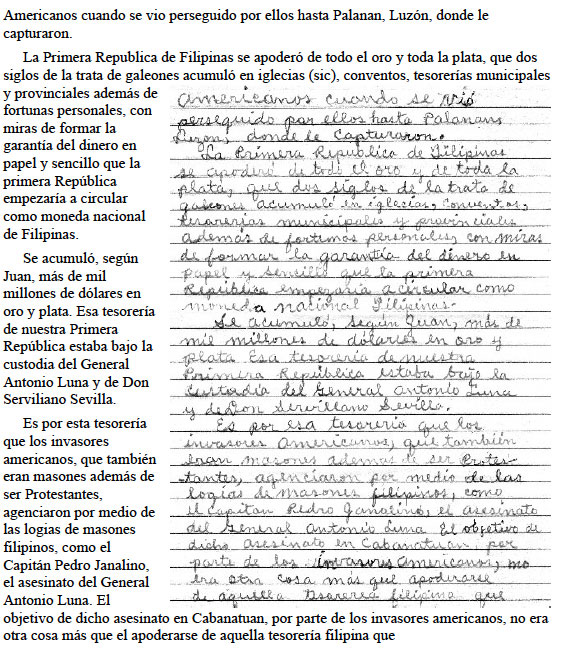 Americanos cuando se vio perseguido por ellos hasta Palanan, Luzón, donde le
capturaron.
La Primera Republica de Filipinas se apoderó de todo el oro y toda la plata, que dos
siglos de la trata de galeones acumuló en iglecias (sic), conventos, tesorerías municipales
y provinciales además de
fortunas personales, con
miras de formar la
garantía del dinero en
papel y sencillo que la
primera República
empezaría a circular
como moneda nacional
de Filipinas.
Se acumuló, según
Juan, más de mil
millones de dólares en
oro y plata. Esa tesorería
de nuestra Primera
República estaba bajo la
custodia del General
Antonio Luna y de Don
Serviliano Sevilla.
Es por esta tesorería
que los invasores
americanos, que también
eran masones además de
ser Protestantes,
agenciaron por medio de
las logias de masones
filipinos, como el
Capitán Pedro Janalino,
el asesinato del General
Antonio Luna. El
objetivo de dicho asesinato en Cabanatuan, por parte de los invasores americanos, no era
otra cosa más que el apoderarse de aquella tesorería filipina que
americanos cuando se vió
perseguido por ellos hasta Palanan,
Luzon, donde le capturaron.
La Primera Republica de Filipinas
se apoderó de todo el oro y de toda la
plata, que dos siglos de la trata de
galeones acumuló en iglecias, conventos,
tesorerías municipales y provinciales
además de fortunas personales, con miras
de formar la garantía del dinero en
papel y sencillo que la primera
República empezaría a circular como
moneda nacional Filipinas.
Se acumuló, según Juan, más de
mil millones de dólares en oro y
plata. Esa tesorería de nuestra
Primera República estaba bajo la
custodia del General Antonio Luna
y de Don Servillano Sevilla.
Es por esa tesorería que los
invasores Americanos, que también
eran masones ademas de ser Protes-
tantes, agenciaron por medio de las
logias de masones filipinos, como
el Capitan Pedro Janolino, el asesinato
del General Antonio Luna. El objetivo de
dicho asesinato en Cabanatuan, por
parte de los invasores Americanos, no
era otra cosa más que apoderarse
de aquella tesorería filipina que